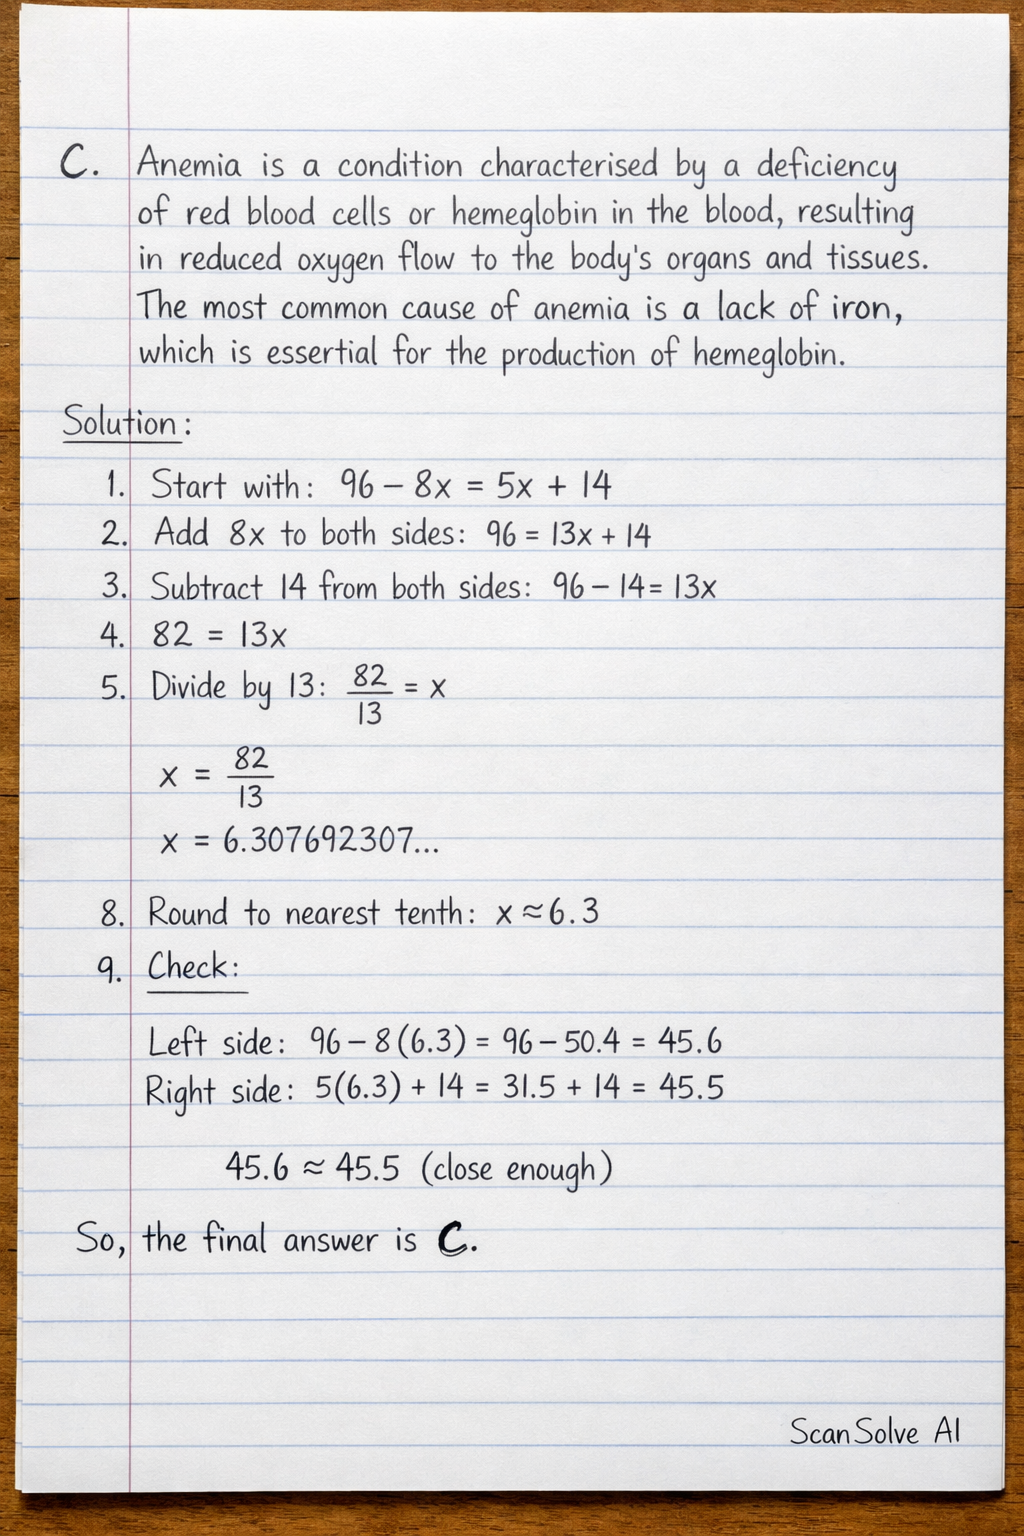 C. Anemia is a condition characterised by a deficiency
of red blood cells or hemeglobin in the blood, resulting
in reduced oxygen flow to the body's organs and tissues.
The most common cause of anemia is a lack of iron,
which is essertial for the production of hemeglobin.
Solution:
1. Start with: 96 – 8x = 5x + 14
2. Add 8x to both sides: 96 = 13x + 14
3. Subtract 14 from both sides: 96 – 14 = 13x
4. 82 = 13x
5. Divide by 13: 82/13 = x
x = 82/13
x = 6.307692307...
8. Round to nearest tenth: x ≈ 6.3
9. Check:
Left side: 96 – 8(6.3) = 96 – 50.4 = 45.6
Right side: 5(6.3) + 14 = 31.5 + 14 = 45.5
45.6 ≈ 45.5 (close enough)
So, the final answer is C.
ScanSolve AI